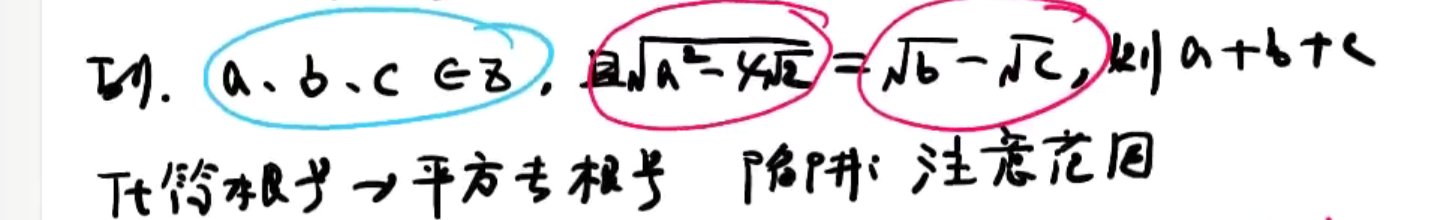 例. a、b、c ∈ Z, 且√(a²-4√2) = √b - √c, 则 a+b+c
破除根号→平方去根号 陷阱: 注意范围